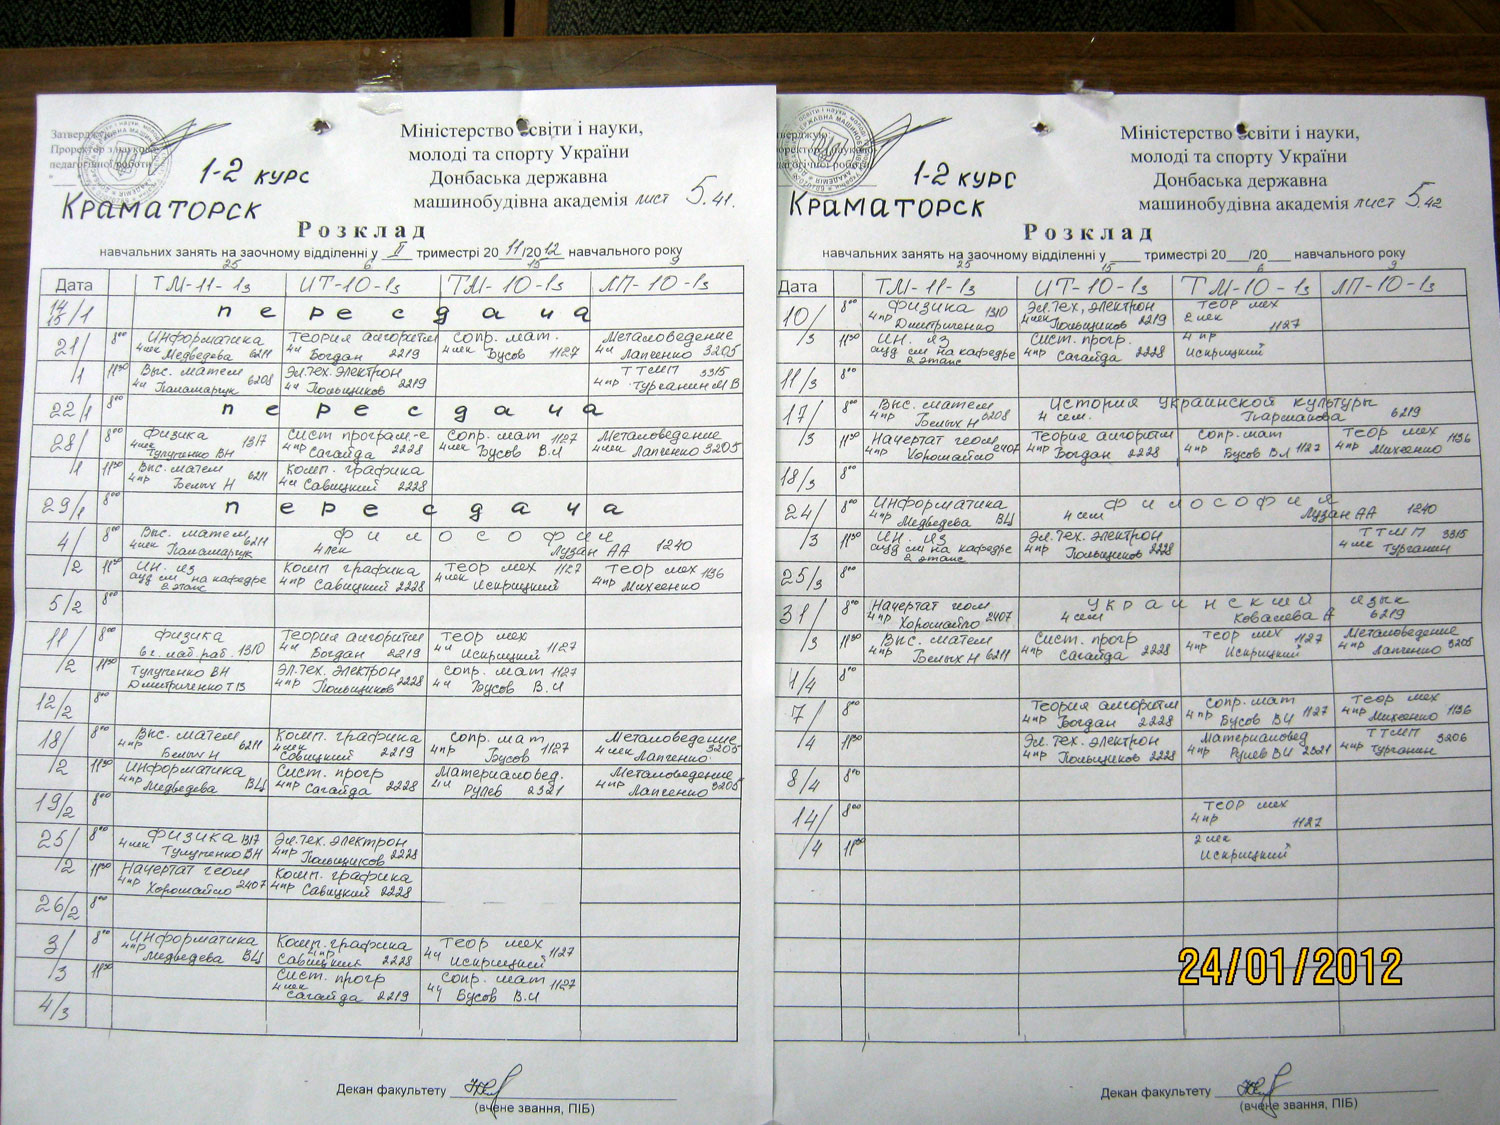 Затверджую
Проректор з науково-
педагогічної роботи
Міністерство освіти і науки,
молоді та спорту України
Донбаська державна
машинобудівна академія лист 5.41.
1-2 курс
Краматорск
Розклад
навчальних занять на заочному відділенні у II триместрі 2011/2012 навчального року
25 6 15 9
Дата ТМ-11-1з ИТ-10-1з ТМ-10-1з ЛП-10-1з
14/15/1 пересдача
21/ 8⁰⁰ Информатика Теория алгоритм сопр. мат. Металоведение
4лек Медведева 6211 4ч Богдан 2219 4лек Бусов 1127 4ч Лапченко 3205
/1 11³⁰ Выс. матем Эл.тех.электрон ТТМП 3315
4ч Паламарчук 6208 4ч Польщиков 2219 4пр Турганин М В
22/1 8⁰⁰ пересдача
28/ 8⁰⁰ Физика 1317 Сист програм-е Сопр. мат 1127 Металоведение
4лек Тулупенко ВН 4пр Сагайда 2228 4лек Бусов В.И 4лек Лапченко 3205
/1 11³⁰ Выс. матем Комп. графика
4пр Белых Н 6211 4ч Савицкий 2228
29/1 8⁰⁰ пересдача
4/ 8⁰⁰ Выс. матем 6211 философия
4лек Паламарчук 4лек Лузан АА 1240
/2 11³⁰ ИН. яз Комп графика теор мех 1127 теор мех 1136
ауд см на кафедре 4пр Савицкий 2228 4лек Искрицкий 4пр Михеенко
2 этаж
5/2 8⁰⁰
11/ 8⁰⁰ физика Теория алгоритм теор мех
6ч. лаб раб. 1310 4ч Богдан 2219 4ч Искрицкий 1127
/2 11³⁰ Тулупенко ВН Эл.тех. электрон Сопр. мат 1127
Дмитриченко ТВ 4пр Польщиков 2228 4ч Бусов В.И
12/2 8⁰⁰
18/ 8⁰⁰ Выс. матем Комп. графика сопр. мат Металоведение
4пр Белых Н 6211 4лек Савицкий 2219 4пр Бусов 1127 4лек Лапченко 3205
/2 11³⁰ Информатика Сист. прогр Материаловед. Металоведение
4пр Медведева ВЦ 4пр Сагайда 2228 4ч Рулев 2321 4пр Лапченко 3205
19/2 8⁰⁰
25/ 8⁰⁰ физика 1317 Эл.тех. электрон
4лек Тулупенко ВН 4пр Польщиков 2228
/2 11³⁰ Начертат геом Комп. графика
4пр Хорошайло 2407 4пр Савицкий 2228
26/2 8⁰⁰
3/ 8⁰⁰ информатика Комп. графика теор мех
4пр Медведева ВЦ 4пр Савицкий 2228 4ч Искрицкий 1127
/3 11³⁰ Сист. прогр сопр. мат
4лек Сагайда 2219 4ч Бусов В.И 1127
4/3
Декан факультету
(вчене звання, ПІБ)
Міністерство освіти і науки,
молоді та спорту України
Донбаська державна
машинобудівна академія лист 5.42
1-2 курс
Краматорск
Розклад
навчальних занять на заочному відділенні у ____ триместрі 20___/20___ навчального року
25 15 6 9
Дата ТМ-11-1з ИТ-10-1з ТМ-10-1з ЛП-10-1з
10/ 8⁰⁰ физика 1310 Эл.тех, электрон теор мех
4пр Дмитриченко 4лек Польщиков 2219 2 лек 1127
/3 11³⁰ ИН. яз Сист. прогр. 4пр
ауд см на кафедре 4пр Сагайда 2228 Искрицкий
2 этаж
11/3 8⁰⁰
17/ 8⁰⁰ Выс. матем История украинской культуры
4пр Белых Н 6208 4 сем. Пармакова 6219
/3 11³⁰ Начертат геом Теория алгоритм Сопр. мат теор мех 1136
4пр Хорошайло 2407 4пр Богдан 2228 4пр Бусов ВИ 1127 4пр Михеенко
18/3 8⁰⁰
24/ 8⁰⁰ Информатика философия
4пр Медведева ВЦ 4 сем Лузан АА 1240
/3 11³⁰ ИН. яз Эл.тех. электрон ТТМП 3315
ауд см на кафедре 4пр Польщиков 2228 4лек Турганин
2 этаж
25/3 8⁰⁰
31/ 8⁰⁰ Начертат геом украинский язык
4пр Хорошайло 2407 4 сем Ковалева А 6219
/3 11³⁰ Выс. матем Сист. прогр теор мех 1127 Металоведение
4пр Белых Н 6211 4пр Сагайда 2228 4пр Искрицкий 4пр Лапченко 3205
1/4 8⁰⁰
7/ 8⁰⁰ Теория алгоритм Сопр. мат теор мех
4пр Богдан 2228 4пр Бусов ВИ 1127 4пр Михеенко 1136
/4 11³⁰ Эл.тех. электрон Материаловед ТТМП 3206
4пр Польщиков 2228 4пр Рулев ВИ 2321 4пр Турганин
8/4 8⁰⁰
14/ 8⁰⁰ теор мех
4пр 1127
/4 11³⁰ 2 лек
Искрицкий
Декан факультету
(вчене звання, ПІБ)
24/01/2012